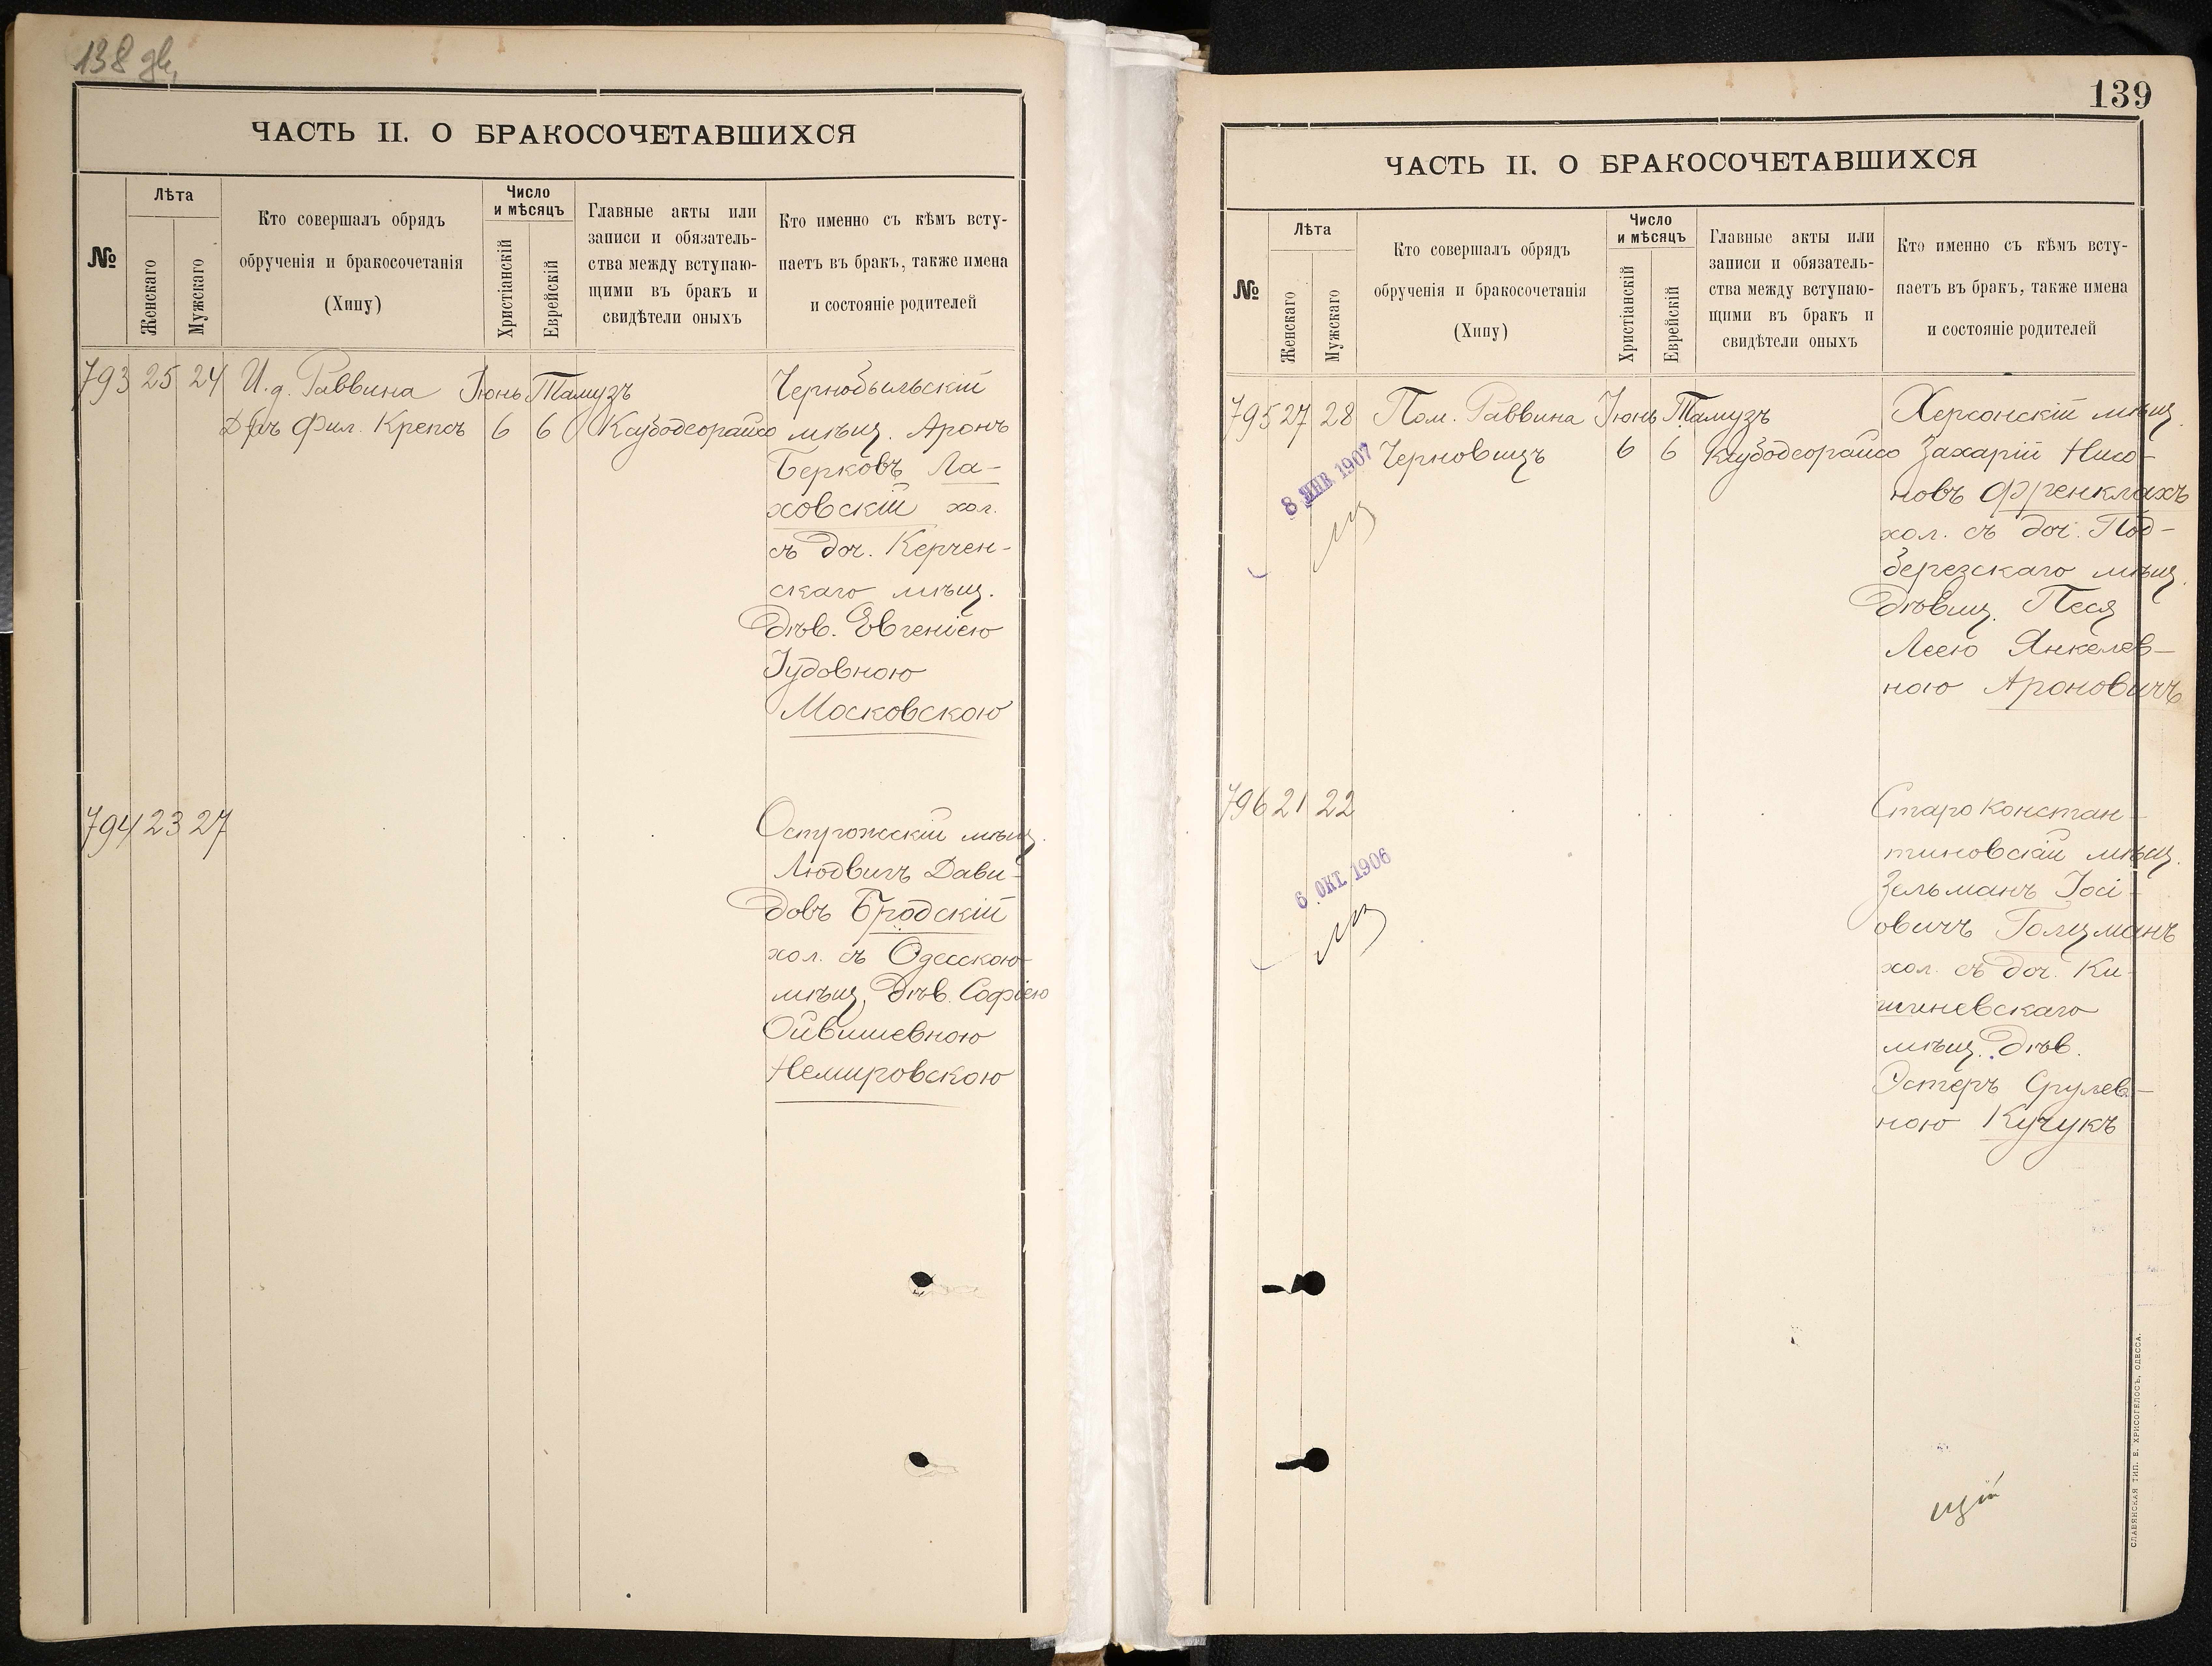 138
ЧАСТЬ II. О БРАКОСОЧЕТАВШИХСЯ
№
Лѣта
Женскаго
Мужскаго
Кто совершалъ обрядъ
обрученія и бракосочетанія
(Хипу)
Число
и мѣсяцъ
Христіанскій
Еврейскій
Главные акты или
записи и обязатель-
ства между вступаю-
щими въ бракъ и
свидѣтели оныхъ
Кто именно съ кѣмъ всту-
паетъ въ бракъ, также имена
и состояніе родителей
793 25 24 И. д. Раввина Іюнь Тамузъ
Фил. Крепсъ 6 6
Чернобыльскій
мѣщ. Аронъ
Берковъ Ла-
ховскій хол.
съ доч. Керчен-
скаго мѣщ.
Дѣв. Евгеніею
Іудовною
Московскою
794 23 27
Острожскій мѣщ.
Людвигъ Дави-
довъ Бродскій
хол. съ Одесскою
мѣщ. дѣв. Софіею
Ойвишевною
Немировскою
139
ЧАСТЬ II. О БРАКОСОЧЕТАВШИХСЯ
№
Лѣта
Женскаго
Мужскаго
Кто совершалъ обрядъ
обрученія и бракосочетанія
(Хипу)
Число
и мѣсяцъ
Христіанскій
Еврейскій
Главные акты или
записи и обязатель-
ства между вступаю-
щими въ бракъ и
свидѣтели оныхъ
Кто именно съ кѣмъ всту-
паетъ въ бракъ, также имена
и состояніе родителей
795 27 28 Пом. Раввина Іюнь Тамузъ
Черновицъ 6 6
8 ЯНВ 1907
Херсонскій мѣщ.
Захарій Нисо-
новъ Френклахъ
хол. съ доч. Под-
березскаго мѣщ.
Дѣвиц. Песя
Леею Янкелев-
ною Ароновичъ
796 21 22
6 ОКТ 1906
Староконстан-
тиновскій мѣщ.
Зельманъ Іосі-
овичъ Голцманъ
хол. съ доч. Ки-
шиневскаго
мѣщ. дѣв.
Эстеръ Срулев-
ною Кучукъ
СЛАВЯНСКАЯ ТИП. Е. ХРИСОГЕЛОСЪ, ОДЕССА.